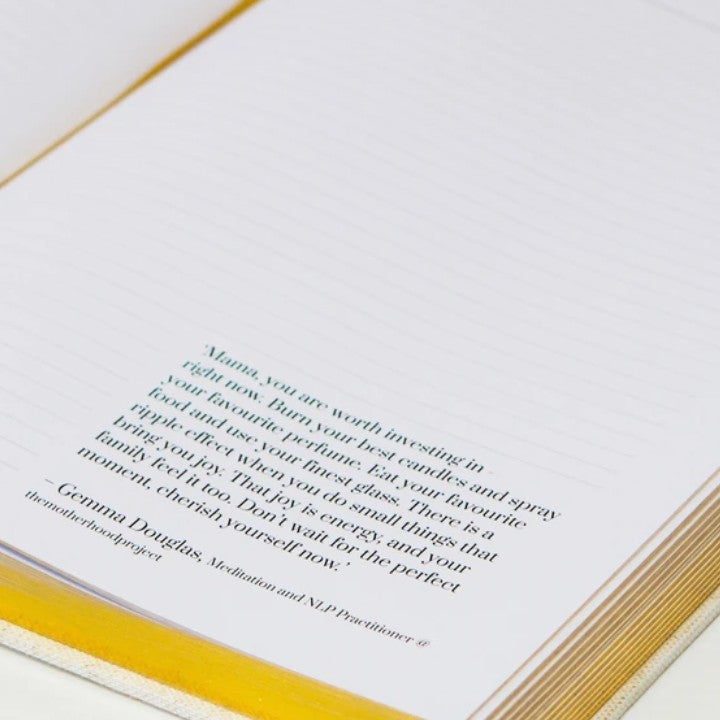 'Mama, you are worth investing in -
right now. Burn your best candles and spray
your favourite perfume. Eat your favourite
food and use your finest glass. There is a
ripple effect when you do small things that
bring you joy. That joy is energy, and your
family feel it too. Don't wait for the perfect
moment, cherish yourself now.'
– Gemma Douglas, Meditation and NLP Practitioner @
themotherhoodproject